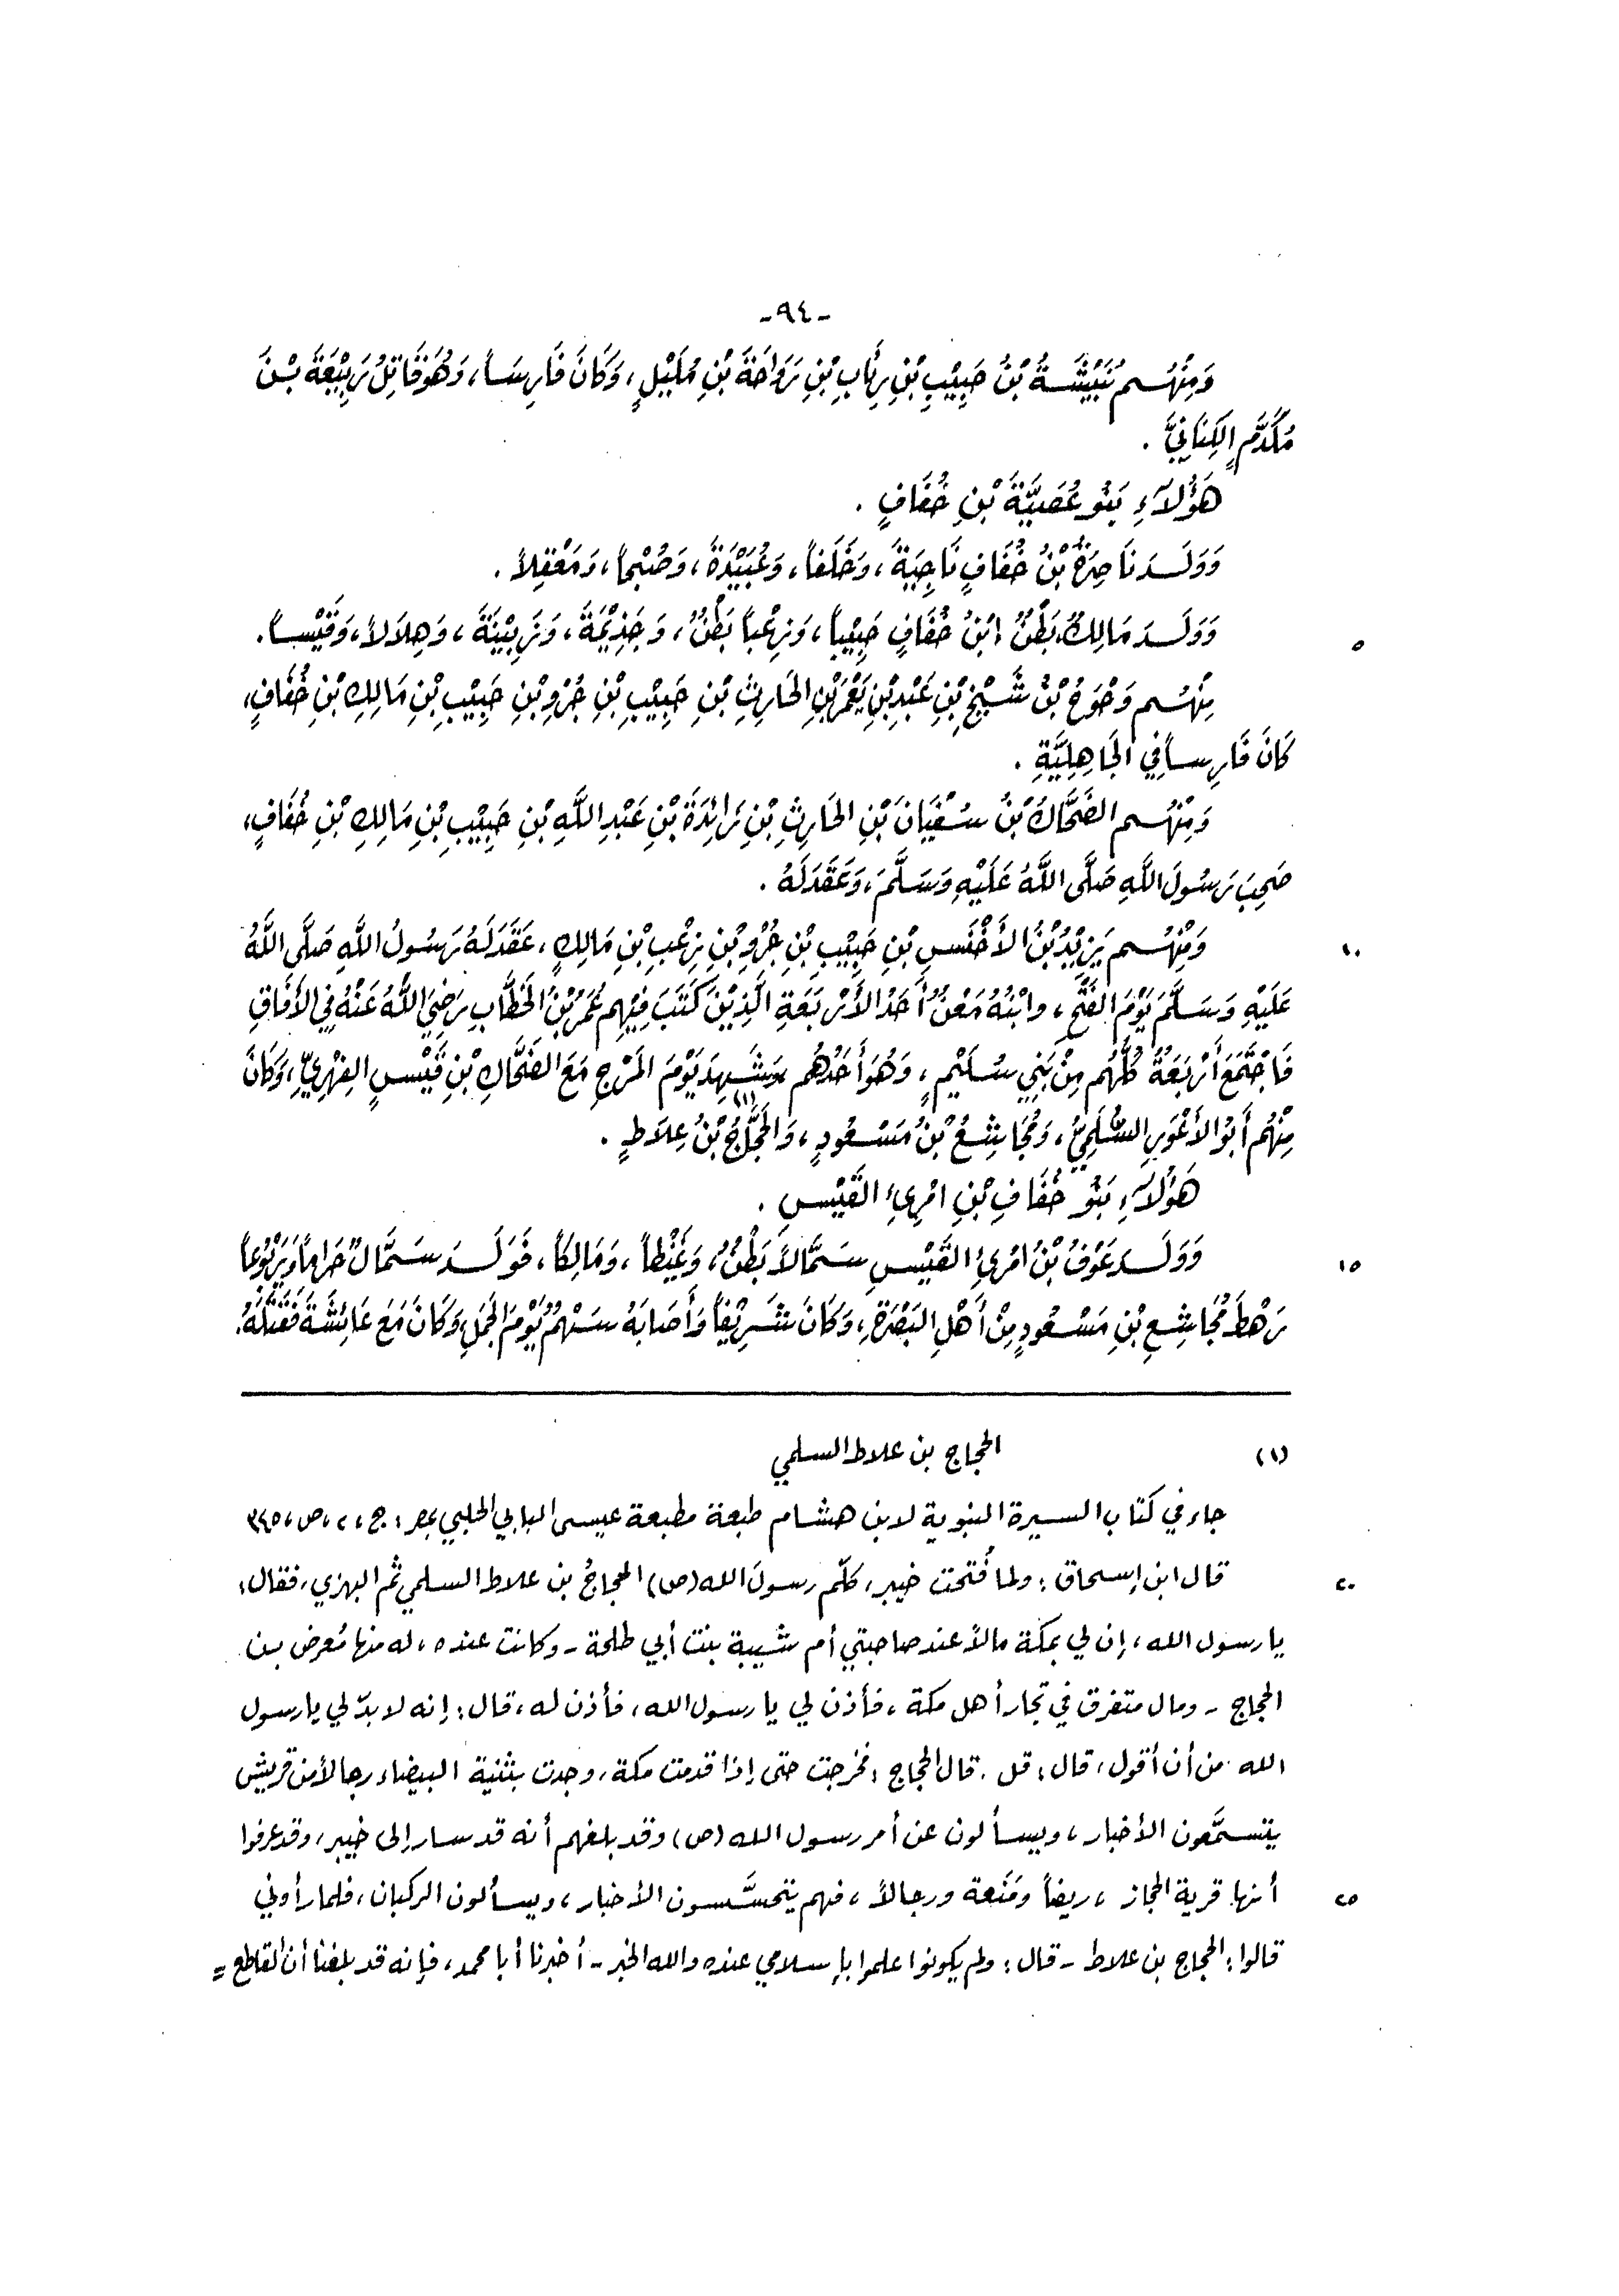 -٩٤-
وَمِنْهُم نُبَيْشَةُ بْنُ حَبِيْبِ بْنِ رِئَابِ بْنِ رَوَاحَةَ بْنِ مُلَيْلٍ، وَكَانَ فَارِسَاً، وَهُوَ قَاتِلُ رَبِيْعَةَ بْنَ
مُكَدَّمٍ الكِنَانِيَّ .
هَؤُلَآءِ بَنُو عُصَيَّةَ بْنِ خُفَافٍ .
وَوَلَدَ نَاصِرَةُ بْنُ خُفَافٍ نَاجِيَةَ، وَخَلَفاً، وَعُبَيْدَةَ، وَصُبْحاً، وَمَعْقِلاً .
وَوَلَدَ مَالِكٌ، بَطْنٌ ابْنُ خُفَافٍ حَبِيْباً، وَزِعْباً بَطْنٌ، وَجَذِيْمَةَ، وَزَبِيْنَةَ، وَهِلَالاً، وَقَيْساً.
٥
مِنْهُم وَحْوَحُ بْنُ شَيْخِ بْنِ عَبْدِ بْنِ يَعْمَرَ بْنِ الحَارِثِ بْنِ حَبِيْبِ بْنِ جُزْوِ بْنِ حَبِيْبِ بْنِ مَالِكِ بْنِ خُفَافٍ،
كَانَ فَارِساً فِي الجَاهِلِيَّةِ .
وَمِنْهُم الضَّحَّاكُ بْنُ سُفْيَانَ بْنِ الحَارِثِ بْنِ زَائِدَةَ بْنِ عَبْدِ اللَّهِ بْنِ حَبِيْبِ بْنِ مَالِكِ بْنِ خُفَافٍ،
صَحِبَ رَسُولَ اللَّهِ صَلَّى اللَّهُ عَلَيْهِ وَسَلَّمَ، وَعَقَدَ لَهُ .
وَمِنْهُم يَزِيْدُ بْنُ الأَخْنَسِ بْنِ حَبِيْبِ بْنِ جُزْوِ بْنِ زِعْبِ بْنِ مَالِكٍ، عَقَدَ لَهُ رَسُولُ اللَّهِ صَلَّى اللَّهُ
١٠
عَلَيْهِ وَسَلَّمَ يَوْمَ الفَتْحِ، وابْنُهُ مَعْنٌ أَحَدُ الأَرْبَعَةِ الَّذِيْنَ كَتَبَ فِيْهِم عُمَرُ بْنُ الخَطَّابِ رَضِيَ اللَّهُ عَنْهُ فِي الآفَاقِ
فَاجْتَمَعَ أَرْبَعَةٌ كُلُّهُم مِنْ بَنِي سُلَيْمٍ، وَهُوَ أَحَدُهُم وَشَهِدَ يَوْمَ المَرْجِ مَعَ الضَّحَّاكِ بْنِ قَيْسٍ الفِهْرِيِّ، وَكَانَ
مِنْهُم أَبُو الأَعْوَرِ السُّلَمِيُّ، وَمُجَاشِعُ بْنُ مَسْعُودٍ، وَالحَجَّاجُ بْنُ عِلَاطٍ(١) .
هَؤُلَآءِ بَنُو خُفَافِ بْنِ امْرِئِ القَيْسِ .
وَوَلَدَ عَوْفُ بْنُ امْرِئِ القَيْسِ سَمَّالاً بَطْنٌ، وَغَيْظاً، وَمَالِكاً، فَوَلَدَ سَمَّالٌ حَرَاماً وَيَرْبُوعاً
١٥
رَهْطَ مُجَاشِعِ بْنِ مَسْعُودٍ مِنْ أَهْلِ البَصْرَةِ، وَكَانَ شَرِيْفاً وَأَصَابَهُ سَهْمٌ يَوْمَ الجَمَلِ وَكَانَ مَعَ عَائِشَةَ فَقَتَلَهُ.
(١) الحجاج بن علاط السلمي
جاء في كتاب السيرة النبوية لابن هشام طبعة مطبعة عيسى البابي الحلبي بمصر: ج، ٢، ص، ٣٤٥
قال ابن إسحاق: ولما فُتحت خيبر، كلّم رسولَ الله (ص) الحجاجُ بن علاط السلمي ثم البهزي، فقال:
٢٠
يا رسول الله، إن لي بمكة مالاً عند صاحبتي أم شيبة بنت أبي طلحة - وكانت عنده، له منها مُعرض بن
الحجاج - ومال متفرق في تجار أهل مكة، فأذن لي يا رسول الله، فأذن له، قال: إنه لا بدّ لي يا رسول
الله من أن أقول، قال: قل. قال الحجاج: فخرجت حتى إذا قدمت مكة، وجدت بثنية البيضاء رجالاً من قريش
يتسمَّعون الأخبار، ويسألون عن أمر رسول الله (ص) وقد بلغهم أنه قد سار إلى خيبر، وقد عرفوا
أنها قرية الحجاز، ريفاً ومَنَعة ورجالاً، فهم يتحسَّسون الأخبار، ويسألون الركبان، فلما رأوني
٢٥
قالوا: الحجاج بن علاط - قال: ولم يكونوا علموا بإسلامي عنده والله الخبر - أخبرنا أبا محمد، فإنه قد بلغنا أن القاطع =